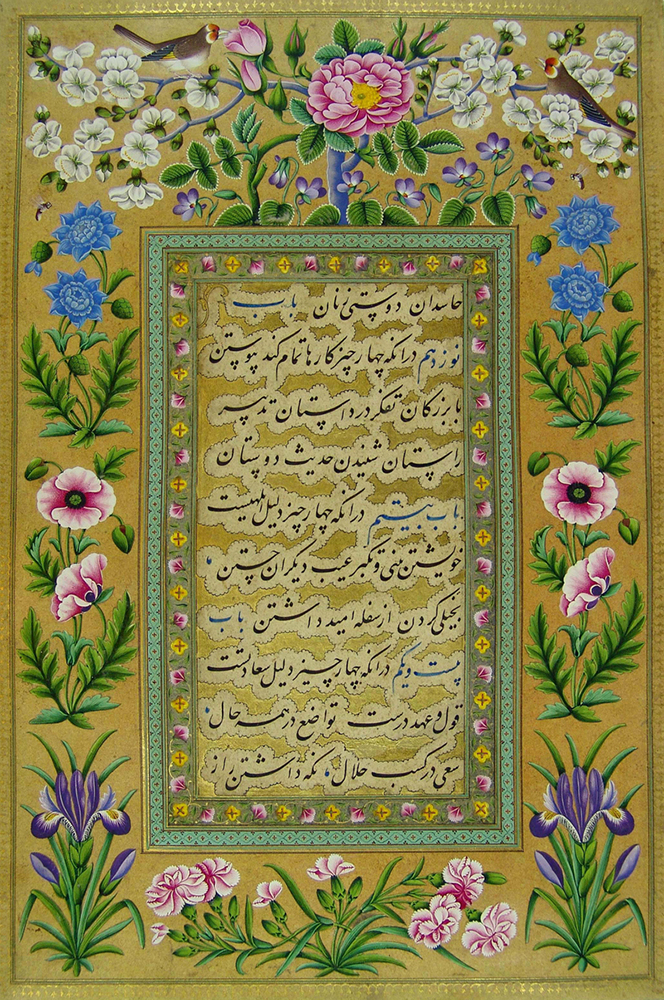 حاسدان دوستی زنان باب
نوزدهم در آنکه چهار چیز کارها تمام کند پیوستن
با بزرکان تفکر در داستان تدبیر
راستان شنیدن حدیث دوستان
باب بیستم در آنکه چهار چیز دلیل ابلهیست
خویشتن بینی و تکبر عیب دیگران جستن
بخیلی کردن از سفله امید داشتن باب
بیست و یکم در آنکه چهار چیز دلیل سعادتست
قول و عهد درست تواضع در همه حال
سعی در کسب حلال نکه داشتن راز